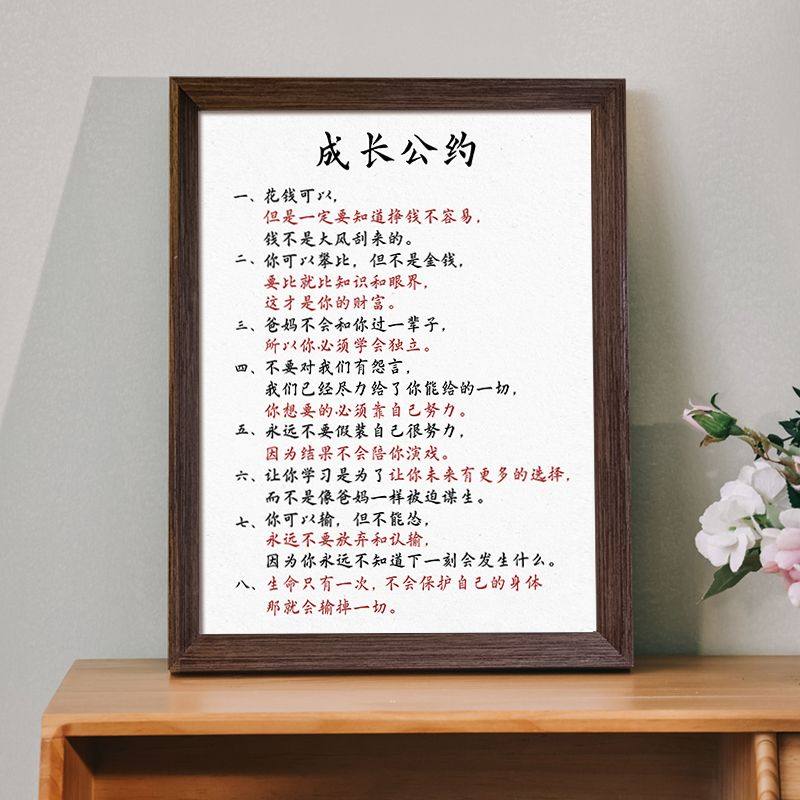 成长公约
一、花钱可以，
但是一定要知道挣钱不容易，
钱不是大风刮来的。
二、你可以攀比，但不是金钱，
要比就比知识和眼界，
这才是你的财富。
三、爸妈不会和你过一辈子，
所以你必须学会独立。
四、不要对我们有怨言，
我们已经尽力给了你能给的一切，
你想要的必须靠自己努力。
五、永远不要假装自己很努力，
因为结果不会陪你演戏。
六、让你学习是为了让你未来有更多的选择，
而不是像爸妈一样被迫谋生。
七、你可以输，但不能怂，
永远不要放弃和认输，
因为你永远不知道下一刻会发生什么。
八、生命只有一次，不会保护自己的身体
那就会输掉一切。